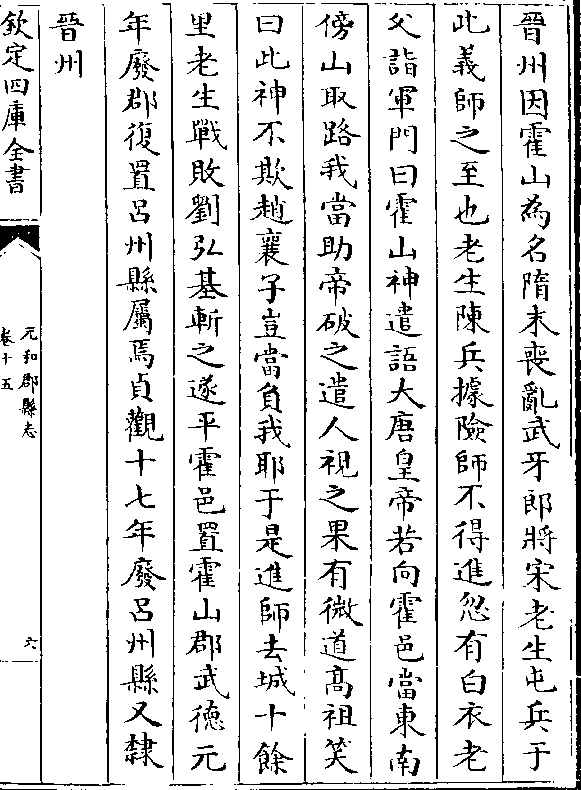 晉州因霍山為名隋末喪亂武牙郎將宋老生屯兵于
此義師之至也老生陳兵據險師不得進忽有白衣老
父詣軍門曰霍山神遣語大唐皇帝若向霍邑當東南
傍山取路我當助帝破之遣人視之果有微道高祖笑
曰此神不欺趙襄子豈當負我耶于是進師去城十餘
里老生戰敗劉弘基斬之遂平霍邑置霍山郡武德元
年廢郡復置呂州縣屬焉貞觀十七年廢呂州縣又隸
晉州
欽定四庫全書
元和郡縣志
卷十五
六